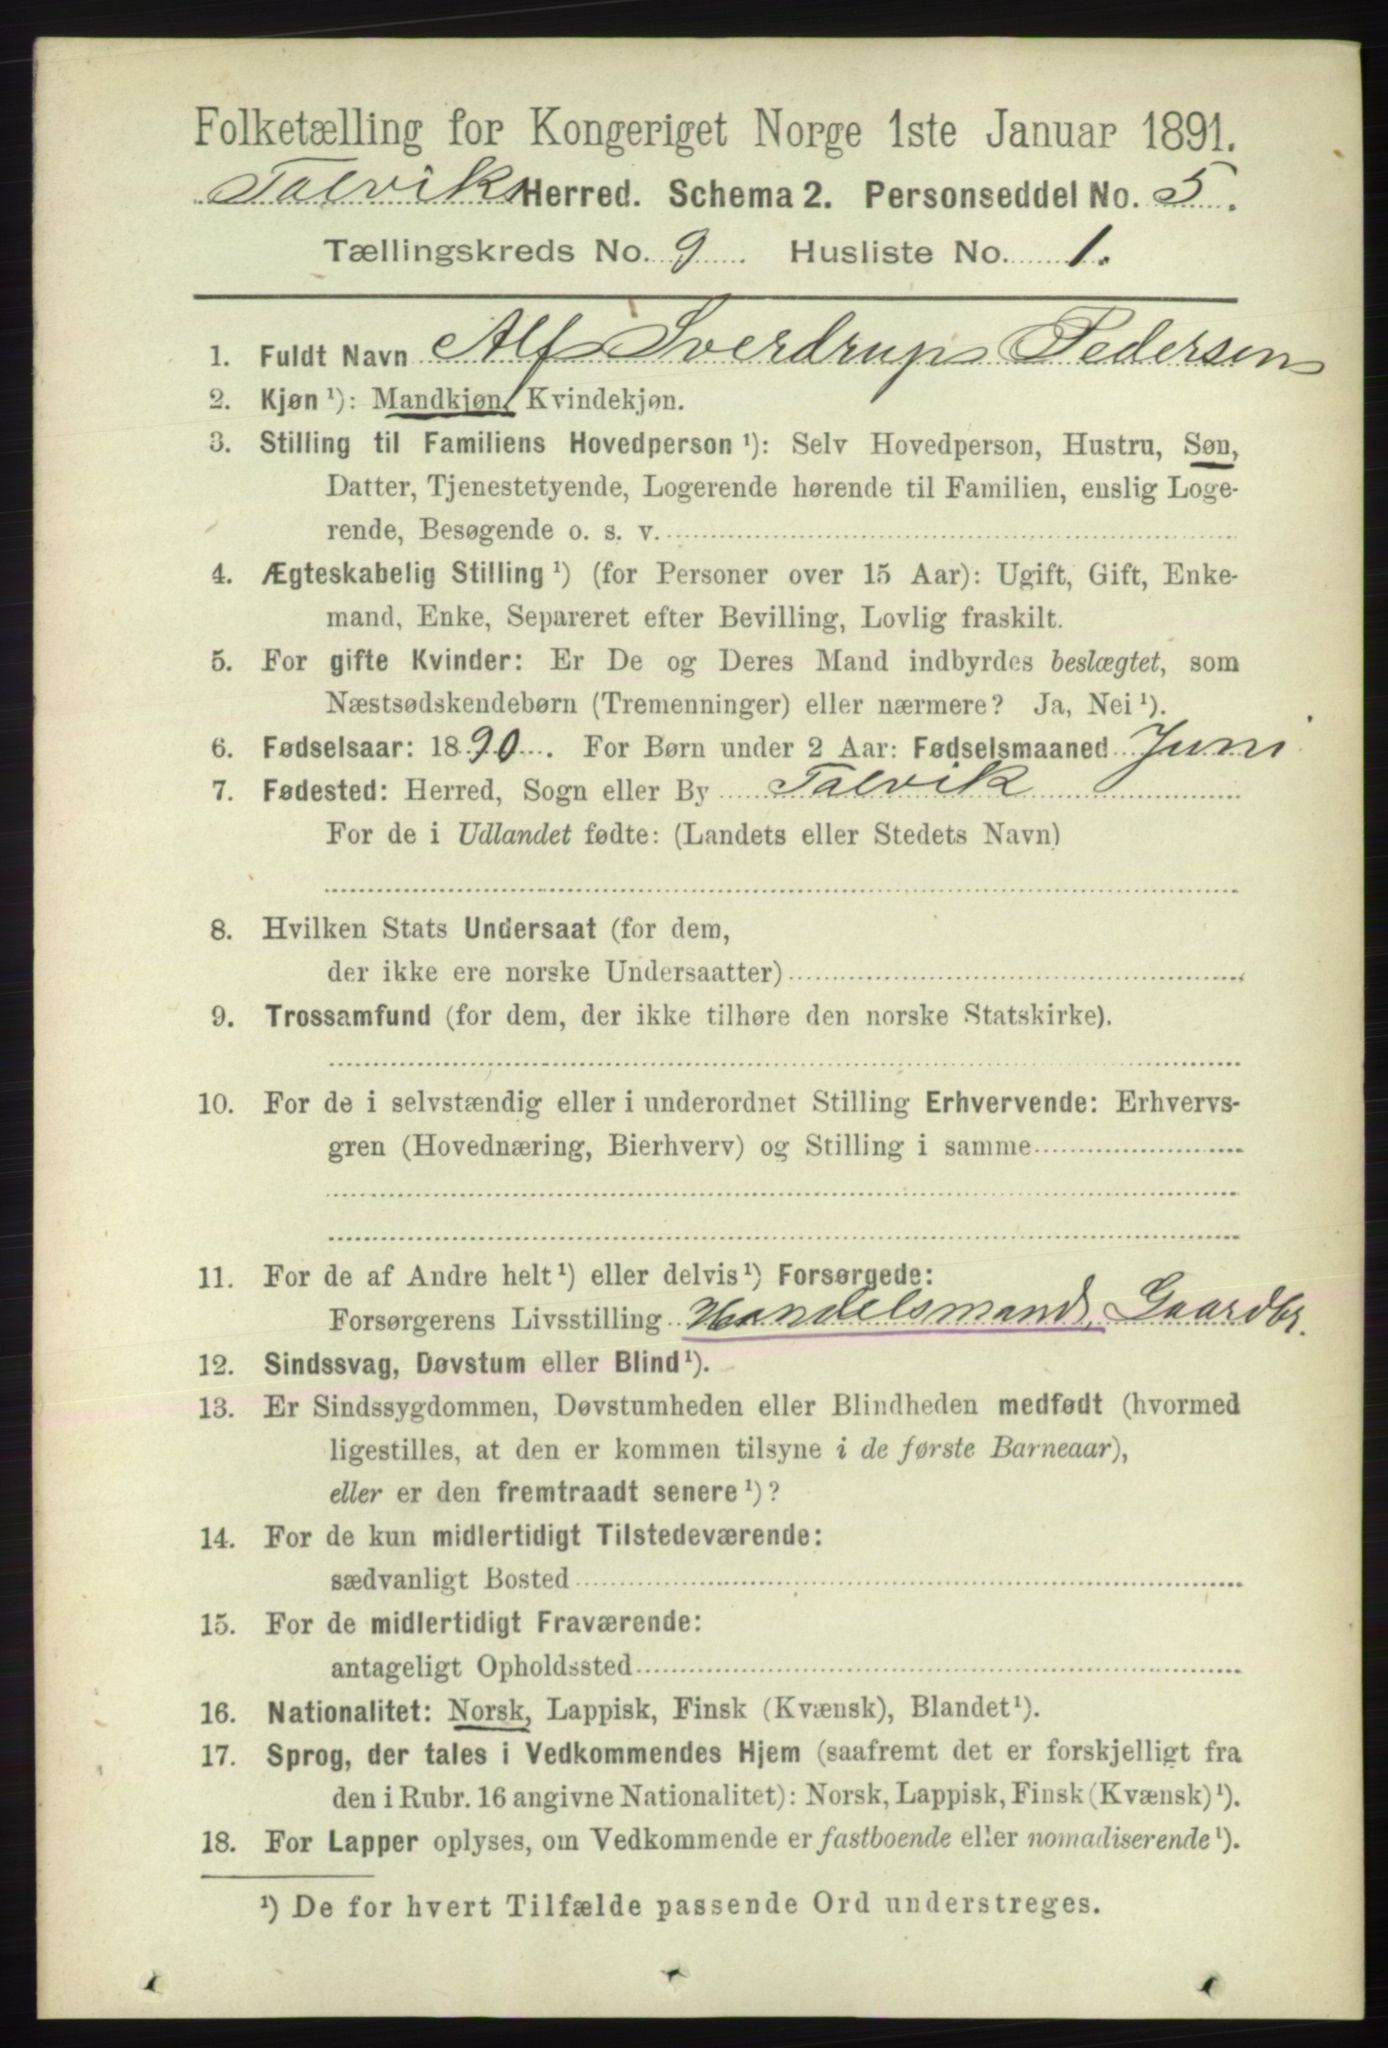 Folketælling for Kongeriget Norge 1ste Januar 1891.
Talviks Herred. Schema 2. Personseddel No. 5.
Tællingskreds No. 9. Husliste No. 1.
1. Fuldt Navn Alf Sverdrup Pedersen
2. Kjøn ¹): Mandkjøn, Kvindekjøn.
3. Stilling til Familiens Hovedperson ¹): Selv Hovedperson, Hustru, Søn,
Datter, Tjenestetyende, Logerende hørende til Familien, enslig Loge-
rende, Besøgende o. s. v.
4. Ægteskabelig Stilling ¹) (for Personer over 15 Aar): Ugift, Gift, Enke-
mand, Enke, Separeret efter Bevilling, Lovlig fraskilt.
5. For gifte Kvinder: Er De og Deres Mand indbyrdes beslægtet, som
Næstsødskendebørn (Tremenninger) eller nærmere? Ja, Nei ¹).
6. Fødselsaar: 1890. For Børn under 2 Aar: Fødselsmaaned Juni
7. Fødested: Herred, Sogn eller By Talvik
For de i Udlandet fødte: (Landets eller Stedets Navn)
8. Hvilken Stats Undersaat (for dem,
der ikke ere norske Undersaatter)
9. Trossamfund (for dem, der ikke tilhøre den norske Statskirke).
10. For de i selvstændig eller i underordnet Stilling Erhvervende: Erhvervs-
gren (Hovednæring, Bierhverv) og Stilling i samme
11. For de af Andre helt ¹) eller delvis ¹) Forsørgede:
Forsørgerens Livsstilling Handelsmand, Gaardbr.
12. Sindssvag, Døvstum eller Blind ¹).
13. Er Sindssygdommen, Døvstumheden eller Blindheden medfødt (hvormed
ligestilles, at den er kommen tilsyne i de første Barneaar),
eller er den fremtraadt senere ¹)?
14. For de kun midlertidigt Tilstedeværende:
sædvanligt Bosted
15. For de midlertidigt Fraværende:
antageligt Opholdssted
16. Nationalitet: Norsk, Lappisk, Finsk (Kvænsk), Blandet ¹).
17. Sprog, der tales i Vedkommendes Hjem (saafremt det er forskjelligt fra
den i Rubr. 16 angivne Nationalitet): Norsk, Lappisk, Finsk (Kvænsk) ¹).
18. For Lapper oplyses, om Vedkommende er fastboende eller nomadiserende ¹).
¹) De for hvert Tilfælde passende Ord understreges.